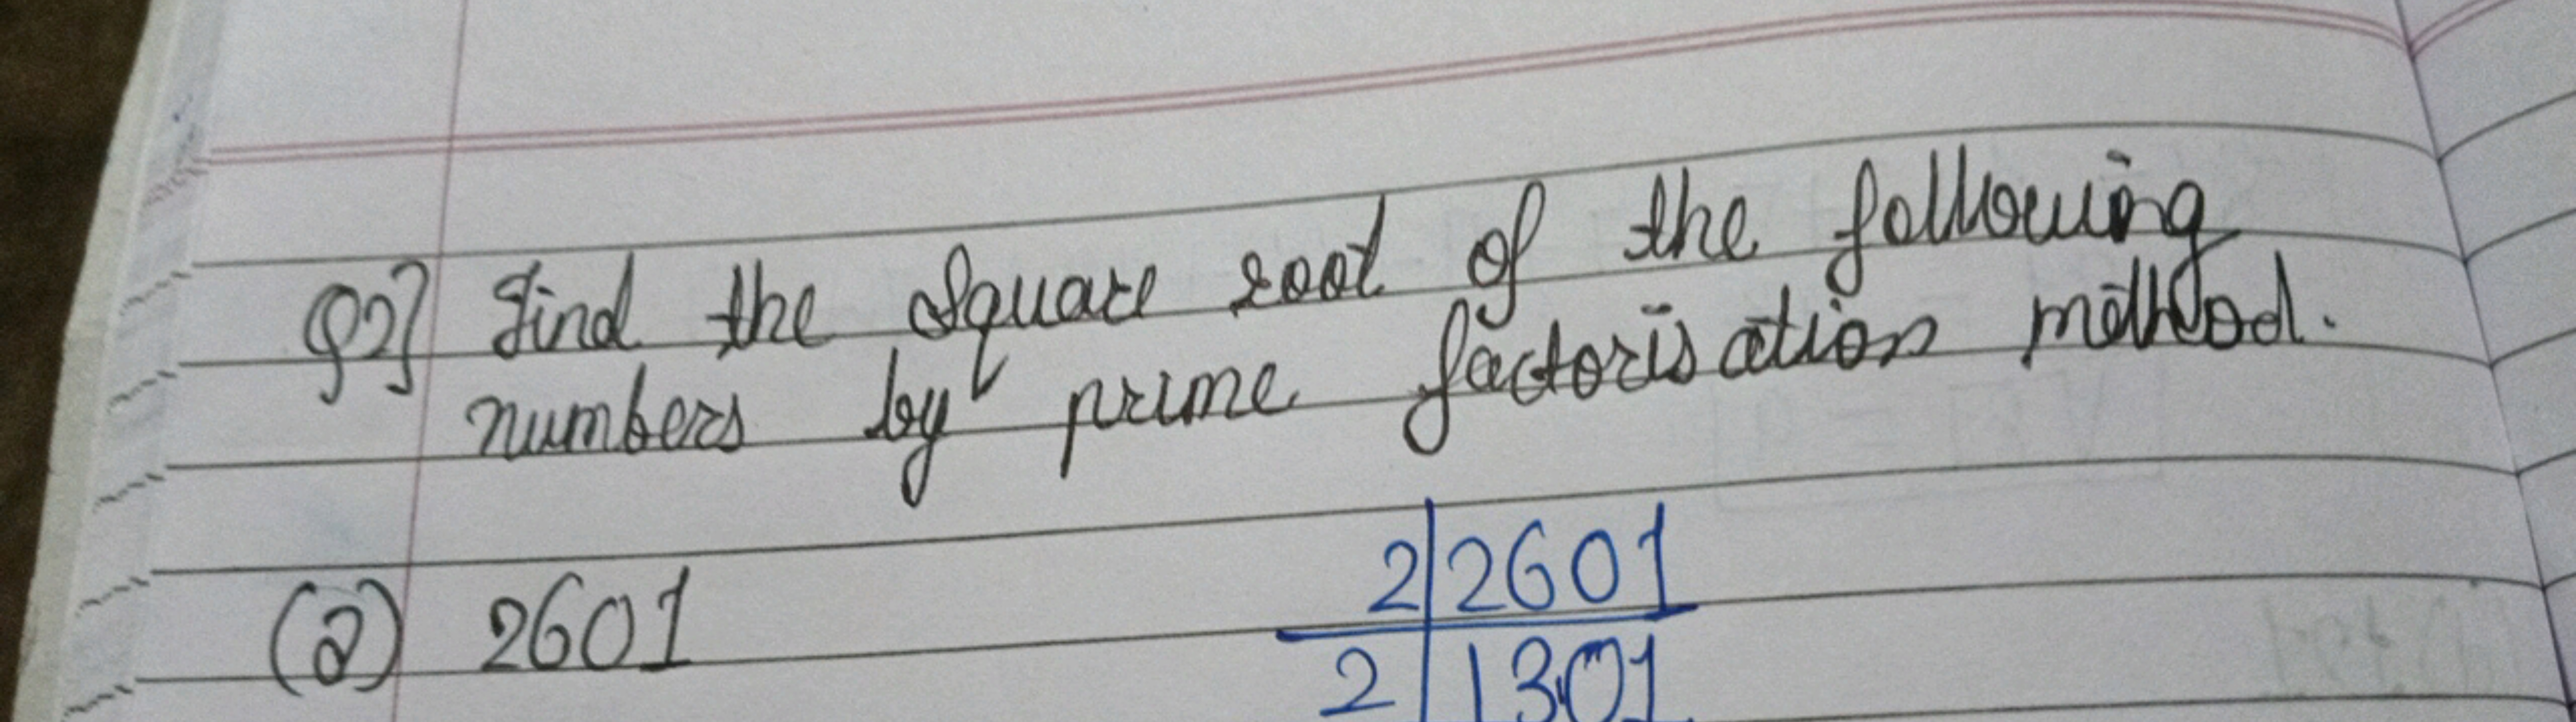 Q2] Find the square root of the following
numbers by prime factorisation method.
(a) 2601
2 2601
2 1301